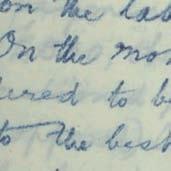 on the la
On the mo
ered to be
to the best